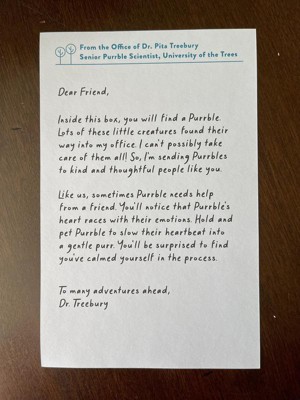 From the Office of Dr. Pita Treebury
Senior Purrble Scientist, University of the Trees
Dear Friend,
Inside this box, you will find a Purrble.
Lots of these little creatures found their
way into my office. I can't possibly take
care of them all! So, I'm sending Purrbles
to kind and thoughtful people like you.
Like us, sometimes Purrble needs help
from a friend. You'll notice that Purrble's
heart races with their emotions. Hold and
pet Purrble to slow their heartbeat into
a gentle purr. You'll be surprised to find
you've calmed yourself in the process.
To many adventures ahead,
Dr. Treebury